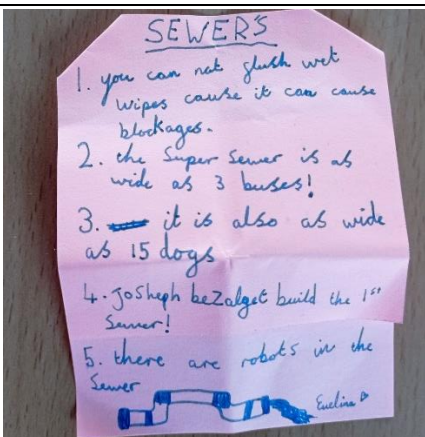 SEWER'S
1. you can not flush wet
wipes cause it can cause
blockages.
2. the Super Sewer is as
wide as 3 buses!
3. it is also as wide
as 15 dogs
4. Josheph beZalget build the 1st
Sewer!
5. there are robots in the
Sewer
Evelina